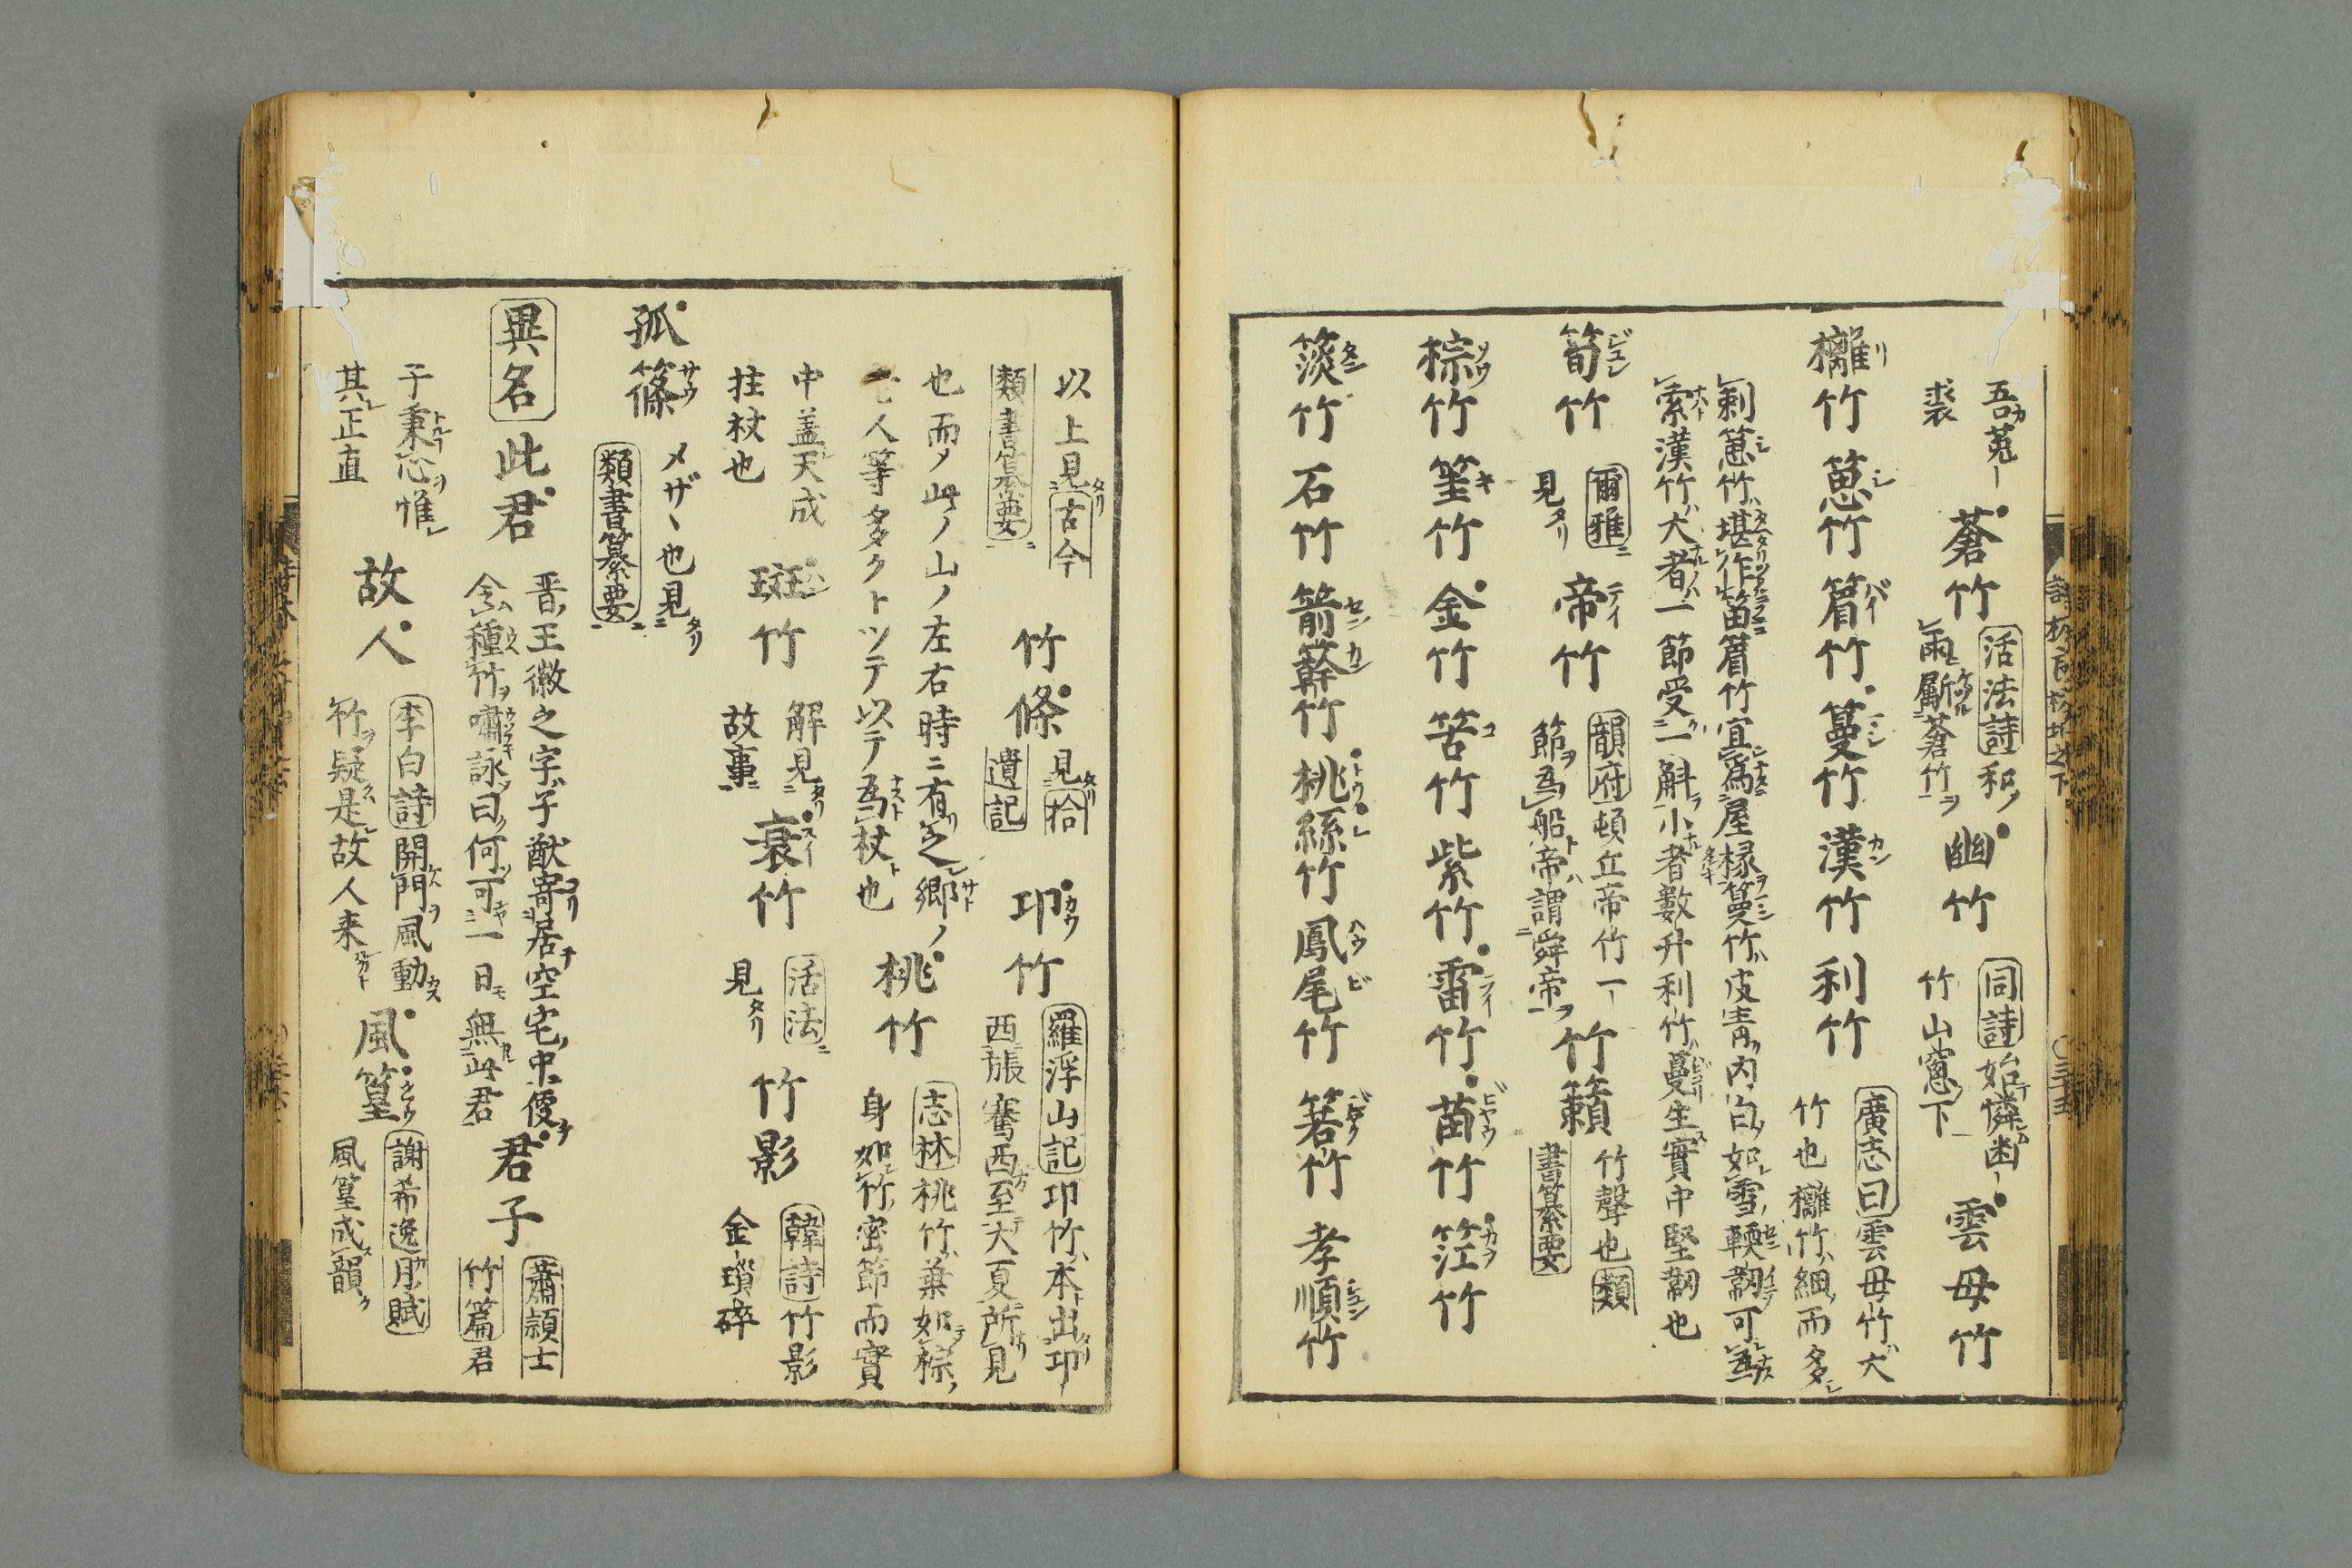 吾菟ー
裘
蒼竹
活法詩和ノ
雨ニ斸蒼竹ヲ
幽竹
同詩始テ憐幽ー
竹山窓ノ下
雲母竹
廣志曰雲母竹ハ大
竹也䉫竹ハ細ノ而多シ
䉫竹 葸竹 䈽竹 䈵竹 漢竹 利竹
剌葸竹ハ堪作笛䈽竹宜為屋椽䈵竹ハ皮青ク内白ノ如雪軟韌可為
索漢竹ハ大者ノハ一節受一斛ヲ小者數升利竹ハ蔓生實中堅韌也
筍竹
爾雅ニ
見タリ
帝竹
韻府頓丘帝竹一ー
節ヲ為船ト帝ハ謂舜帝ヲ
竹籟
竹聲也類
書纂要
棕竹 筀竹 金竹 筈竹 紫竹 雷竹 苗竹 䇨竹
䈊竹 石竹 箭簳竹 桃絲竹 鳳尾竹 箬竹 孝順竹
以上見古今
類書纂要ニ
竹條
見拾
遺記
卭竹
羅浮山記卭竹ハ本出卭
西張騫西至大夏所見
也而ノ此ノ山ノ左右時ニ有之郷ノ
老人等多クトツテ以テ為杖ト也
桃竹
志林桃竹ハ葉如椶ノ
身如竹密節而實
中蓋天成
拄杖也
斑竹
解見
故事ニ
衰竹
活法ニ
見タリ
竹影
韓詩竹影
金瑣碎
孤篠
メザヽ也見
類書纂要ニ
異名
此君
晋ノ王徽之字ハ子猷寄居空宅ノ中便
令種竹ヲ嘯詠曰何可一日モ無此君
君子
蕭頴士
竹篇君
子秉心ヲ惟
其正直
故人
李白詩開門ヲ風動
竹ヲ疑是故人来
風篁
謝希逸月賦
風篁成韻ヲ